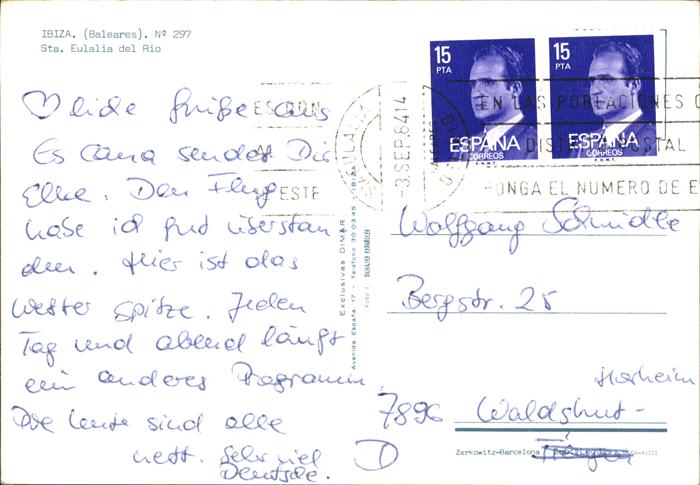 IBIZA. (Baleares). Nº 297
Sta. Eulalia del Rio
♡liche Grüße aus
Es Cana sendet Dir
Elke. Den Flug
habe ich gut überstan
den. Hier ist das
Wetter spitze. Jeden
Tag und abend läuft
ein anderes Programm.
Die Leute sind alle
nett. Sehr viel
Deutsche.
Exclusivas DIMAR
Avenida España, 17 - Teléfono 30 03 45 - IBIZA
Foto:
15
PTA
ESPAÑA
CORREOS
F.N.M.T.
15
PTA
ESPAÑA
CORREOS
F.N.M.T.
-3.SEP.84 14
EN LAS POBLACIONES C
DIST POSTAL
PONGA EL NUMERO DE E
ESTE
Wolfgang Schmidle
Bergstr. 25
Horheim
7896 Waldshut-
Tiengen
D
Zerkowitz-Barcelona